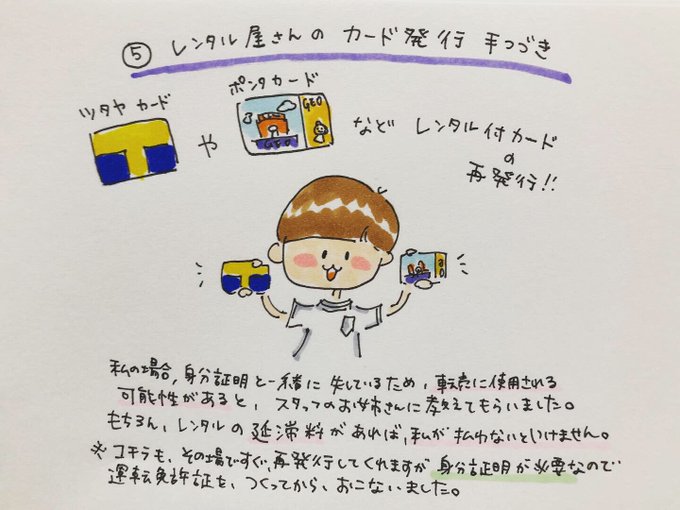 ⑤ レンタル屋さんの カード発行 手つづき
ツタヤ カード
ポンタカード
GEO
GEO
や
など レンタル付カード
の
再発行!!
私の場合、身分証明と一緒に失しているため、転売に使用される
可能性があると、スタッフのお姉さんに教えてもらいました。
もちろん、レンタルの延滞料があれば、私が払わないといけません。
※コチラも、その場ですぐ、再発行してくれますが身分証明が必要なので
運転免許証を、つくってから、おこないました。